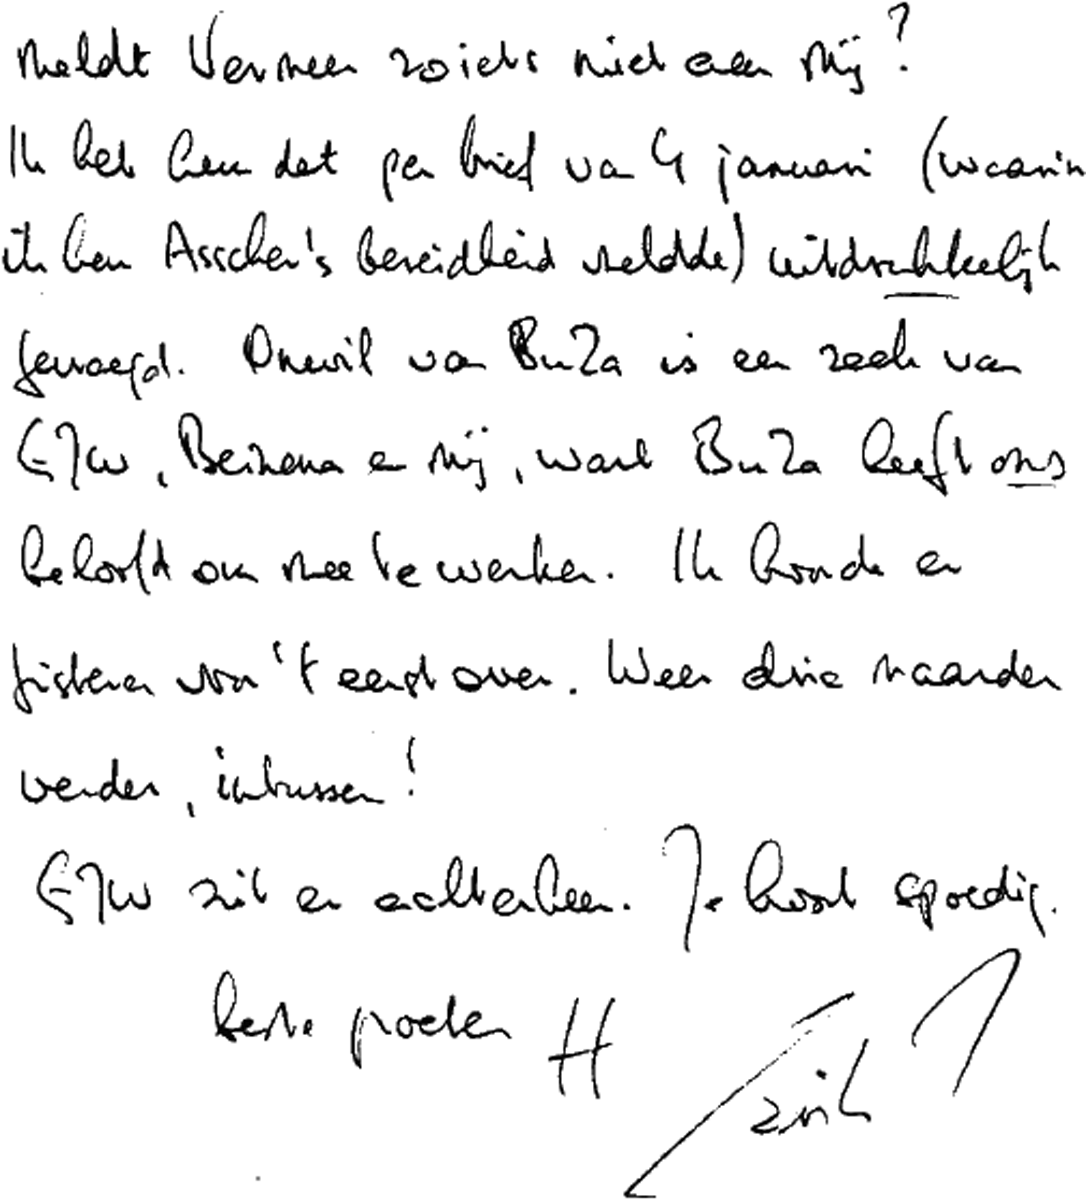 meldt Vermeer zoiets niet aan mij?
Ik heb hen dat per brief van 4 januari (waarin
ik hen Asscher's bereidheid meldde) uitdrukkelijk
gevraagd. Onwil van BuZa is een zaak van
EJW, Beinema en mij, want BuZa heeft ons
beloofd om mee te werken. Ik hoorde er
gisteren voor 't eerst over. Weer drie maanden
verder, intussen!
EJW zit er achterheen. Je hoort spoedig.
beste groeten H